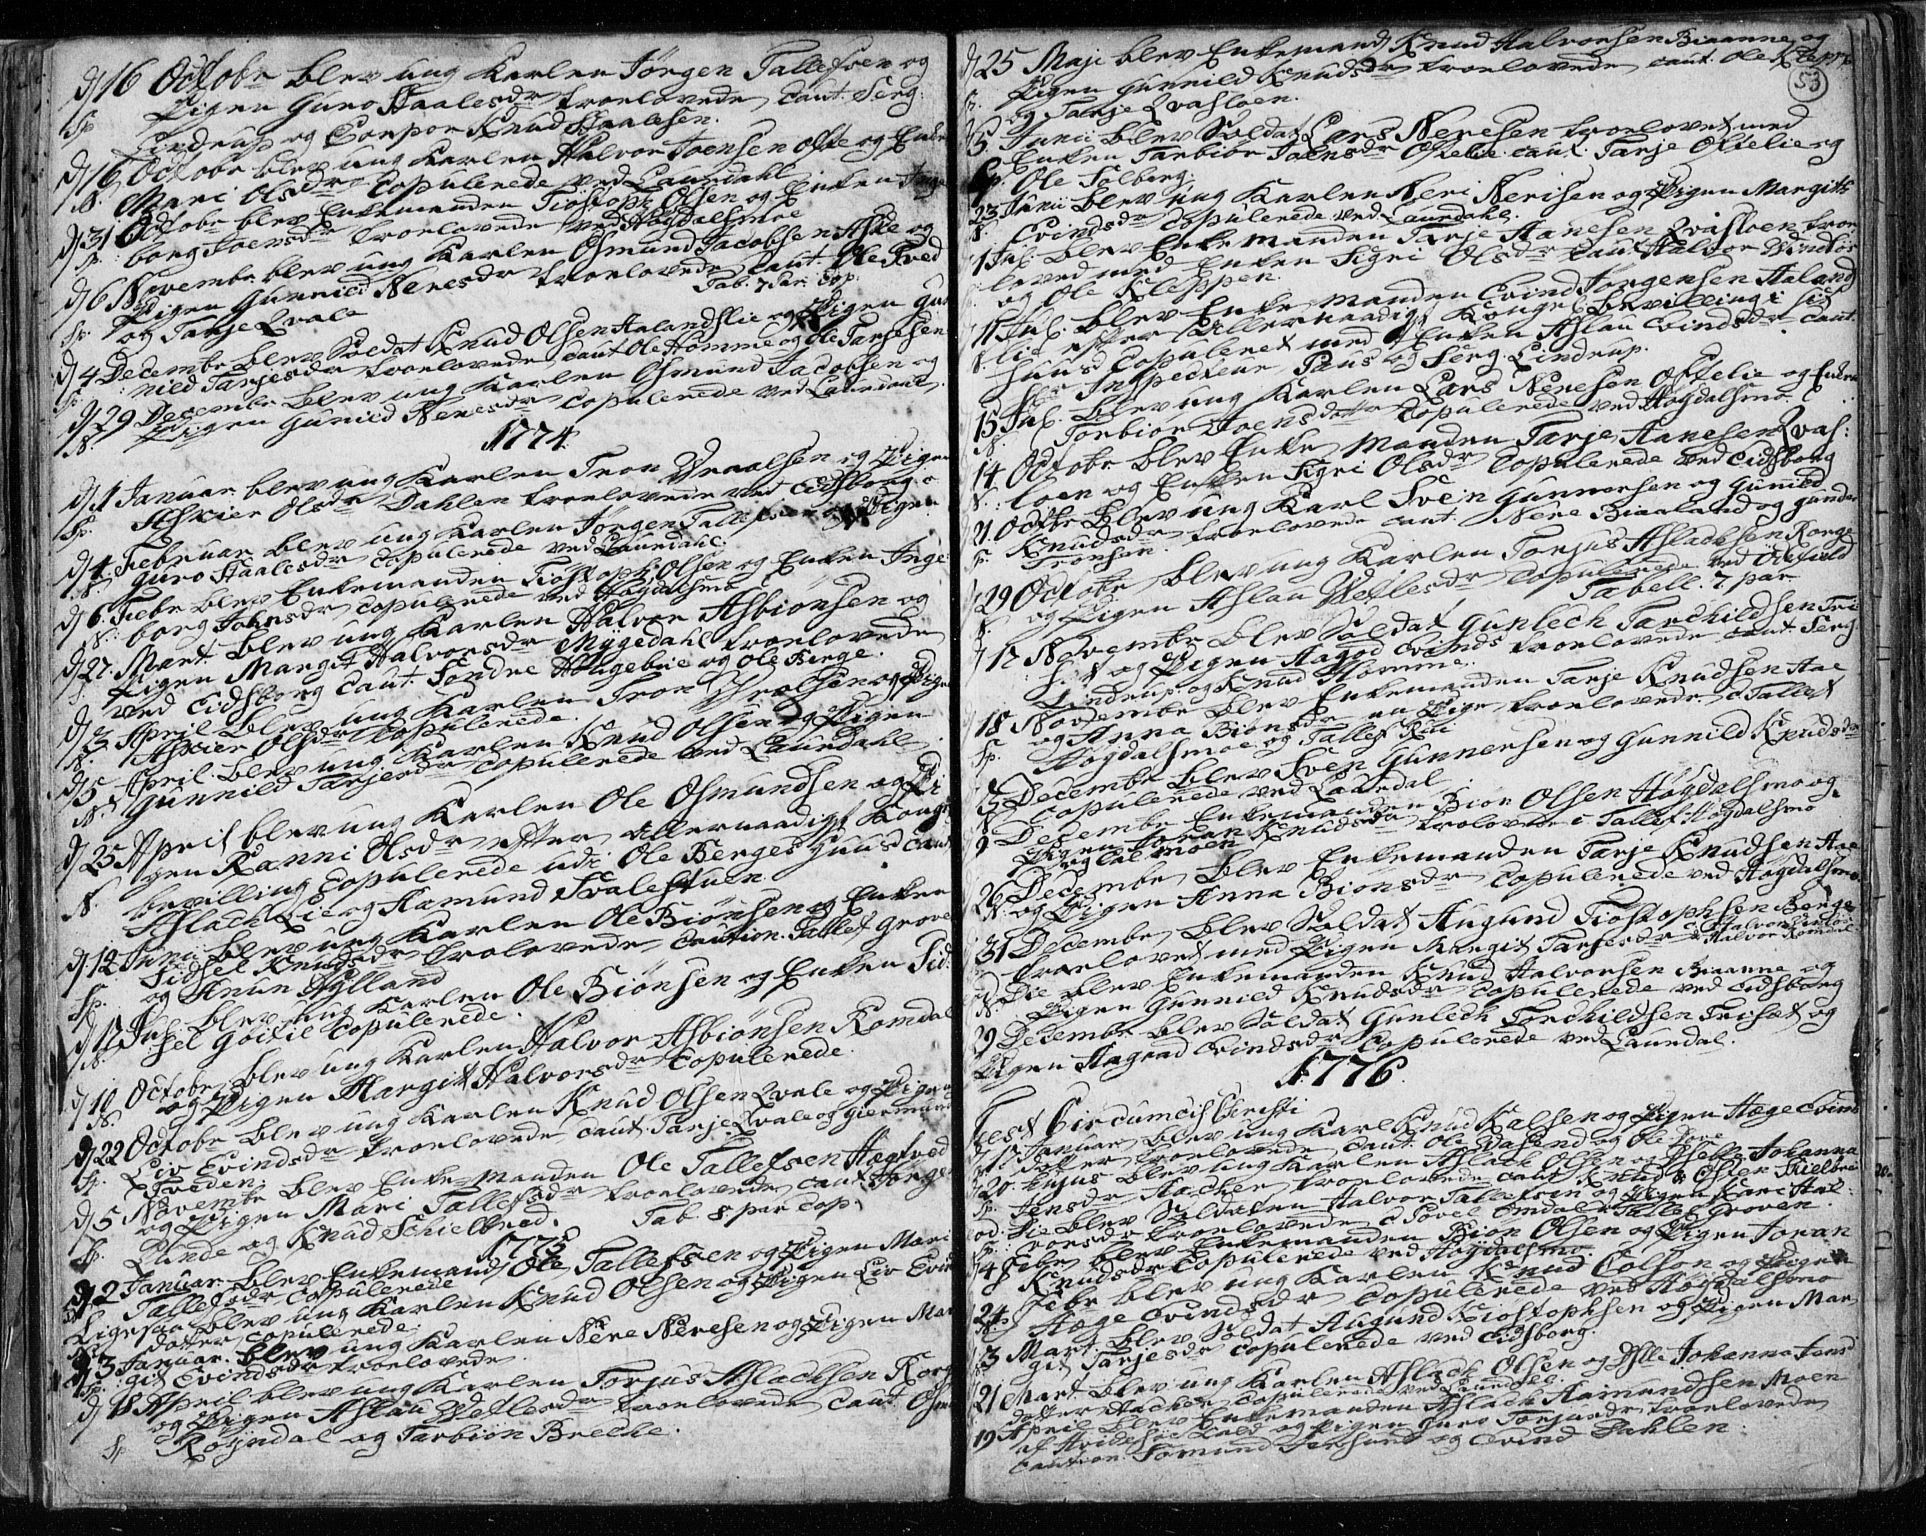 dj 16 Octobr blev ung Karlen Jørgen Tallefsen og
Sp. Pigen Guro Staalesdr troelovede caut. Serg:
Lindrup og Corpor Knud Staalesen.
dj 16 Octobr blev ung Karlen Halvor Joensen Ofte og Enken
N. Mari Olsdr Copulerede ved Laurdahl
dj 31 Octobr blev Enkemanden Tiostoph Olsen og Enken Inge
borg Joensdr troelovede ved Høgdalsmoe
dj 6 Novembr blev ung Karlen Osmund Jacobsen Aske og
Sp. Pigen Gunnild Neresdr troelovede Caut. Ole Tved
og Tarje Qvale
Tab. 7 Par Cop.
dj 4 Decembr blev Soldat Knud Olsen Haalandslie og Pigen Gun
Sp. nild Tarjesdr troelovede caut Ole Homme og Ole Tarjesen
dj 29 Decembr blev ung Karlen Osmund Jacobsen og
N. Pigen Gunild Neresdr Copulerede ved Laurdahl.
1774.
dj 1 Januar blev ung Karlen Tron Vraalsen og Pigen
Sp. Asxier Olsdr Dahlen troelovede ved Eidsborg
dj 4 Februar blev ung Karlen Jørgen Tallefsen og Pigen
N. Guro Staalesdr Copulerede ved Laurdahl.
dj 6 Febr blev Enkemanden Tiostoph Olsen og Enken Inge
N. borg Johnsdr Copulerede ved Høgdalsmo
dj 27 Mart. blev ung Karlen Halvor Asbiønsen og
S. Pigen Margit Halvorsdr Mygedahl troelovede
ved Eidsborg Caut. Sondre Haugebrie og Ole Berge.
dj 3 April blev ung Karlen Tron Vraalsen og Pigen
N. Asxier Olsdr Copulerede.
dj 5 April blev ung Karlen Knud Olsen og Pigen
N. Gunnild Tarjesdr Copulerede ved Laurdahl
dj 25 April blev ung Karlen Ole Osmundsen og Pi
gen Ranni Olsdr efter Allernaadigst Kongl
N. bevilling Copulerede udi Ole Berges Huus caut
Aslach Lie og Aamund Svalestuen.
dj 12 Juni blev ung Karlen Ole Biønsen og Enken
Sp. Sidsel Knudsdr Trolovede Caution. Tallef Grove
og Anun Nylland
dj 17 Jul. blev ung Karlen Ole Biønsen og Enken Sid
N. sel Goitil Copulerede.
dj 10 Octobr blev ung Karlen Halvor Asbiønsen Romdal
N. og Pigen Margit Halvorsdr Copulerede.
dj 22 Octobr blev ung Karlen Knud Olsen Qvale og Pigen
Sp. Liv Evindsdr troelovede caut. Tarje Qvale og Giermund
Tveden.
dj 5 Novembr blev Enkemanden Ole Tallefsen Hægtved
og Pigen Mari Tallefsdr troelovede caut
Sp. Lunde og Knud Schielbred.
Tab. 8 par Cop.
1775
dj 2 Januar blev Enkemand Ole Tallefsen og Pigen Mari
N. Tallefsdr Copulerede
Ligesaa blev ung Karlen Knud Olsen og Pigen Liv Evin
N. dotter Copulerede.
dj 3 Januar. blev ung Karlen Nere Neresen og Pigen Mar
Sp. git Evindsdr troelovede
dj 18 April blev ung Karlen Torjus Aslachsen Rorge
og Pigen Aslau Vetlesdr troelovede Caut Osm
Sp Røyndal og Tarbiøn Brekke.
53
dj 25 Maji blev Enkemand Knud Halvorsen Biaanne og
Sp. Pigen Gunnild Knudsdr troelovede caut. Ole Kleppen
og Tarje Qvasloen.
5 Junii blev Soldat Lars Neresen troelovet med
Enken Tarbiør Joensdr Oftelie caut. Tarje Oftelie og
Sp. Ole Solberg.
23 Junii blev ung Karlen Neri Nerisen og Pigen Margith
N. Evindsdr Copulerede ved Laurdahl.
1 Jul. blev Enkemanden Tarje Aanesen Qvisloen troe
loved med Enken Sigri Olsdr caut. Halvor Vindlös
og Ole Kleppen.
11 Jul. blev Enkemanden Evind Jørgensen Haaland
lie efter Allernaadigst Kongel. Bevilling i sit
N. Huus Copuleret med Enken Aslau Evindsdr caut.
Hr Inspecteur Paus og Serg Lindrup.
15 Jul. blev ung Karlen Lars Neresen Oftelie og Enken
N. Torbiør Joensdatter Copulerede ved Høgdalsmo.
14 Octobr blev Enkemanden Tarje Aanesen Qvas:
N. loen og Enken Sigri Olsdr Copulerede ved Eidsborg
21 Octbr blev ung Karl Svein Gunnersen og Gunild
Sp. Knudsdr troelovede caut. Nere Biaaland og Gunder
Tronsen.
29 Octobr blev ung Karlen Torjus Aslachsen Rorge
og Pigen Aslau Vetlesdr Copulerede ved
Tabell. 7 par
17 Novembr blev Soldat Gunlech Tarchildsen Tri
set og Pigen Aagod Evinds troelovede caut. Serg
Lindrup og Knud Homme.
18 Novembr blev Enkemanden Tarje Knudsen Aae
og Anna Biønsdr en Pige troelovede. C Tallef
Sp. Høgdalsmoe og Tallef Rui
3 Decembr blev Sven Gunnersen og Gunnild Knudsdr
Copulerede ved Laurdal
Decembr Enkemanden Biøn Olsen Høgdalsmo og
Pigen Joran Knudsdr troelovede C Tallef Høgdalsmo
og moen
26 Decembr blev Enkemanden Tarje Knudsen Aae
N. og Pigen Anna Biønsdr Copulerede ved Høgdalsmo
31 Decembr blev Soldat Augund Tiostophsen Berge
troelovet med Pigen Margit Tarjesdr
Halvor Romdal
Die blev Enkemanden Knud Halvorsen Biaanne og
N. Pigen Gunnild Knudsdr Copulerede ved Eidsborg
29 Decembr blev Soldat Gunlech Torchildsen Triset og
Pigen Aagaad Evindsdr Copulerede ved Laurdal.
1776.
Fest Circumcis Christi
dj 17 Januar blev ung Karl Knud Kalsen og Pigen Hæge Evins
dotter troelovede caut. Ole Dahlen og Ole
20 ejus blev ung Karlen Aslach Olsen og Pselle Johanna
Sp. Jensdr Aachen troelovede caut Knud Osler Skielbre
od Die blev Soldaten Halvor Tallefsen og Pigen Kari Hal:
Sp. vorsdr troelovede C Povel Omdal Tallef Groven.
4 Febr blev Enkemanden Biøn Olsen og Pigen Joran
Knudsdr Copulerede ved Høydalsmo.
24 Febr blev ung Karlen Knud Colson og Pigen
N. Hæge Evindsdr Copulerede ved Høgdalsmo
3 Mart. blev Soldat Augund Kiostophsen og Pigen Mar
git Tarjesdr Copulerede ved Eidsborg.
21 Mart blev ung Karlen Aslach Olsen og Pslle Johanna Jens
dotter Aachen Copulerede ved Laurdal.
19 April blev Enkemanden Aslach Aamundsen Moen
af Hvideseid Sogn og Pigen Guro Torjusdr troelovede
caution Tormund og Evind Dahlen.